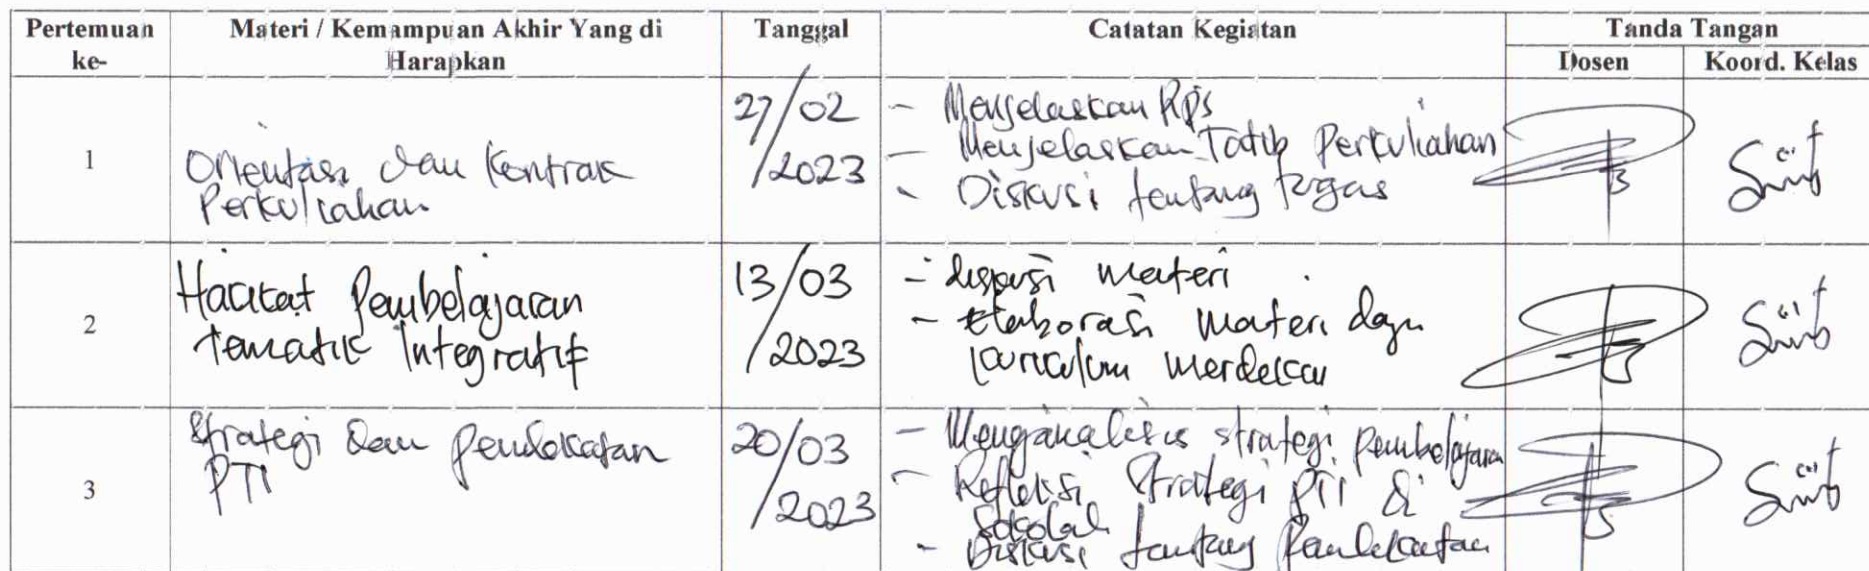 Pertemuan ke-
Materi / Kemampuan Akhir Yang di Harapkan
Tanggal
Catatan Kegiatan
Tanda Tangan
Dosen
Koord. Kelas
1
Orientasi dan Kontrak
Perkuliahan
27/02
/2023
- Menjelaskan RPS
- Menjelaskan Tatib Perkuliahan
- Diskusi tentang tugas
2
Hakikat Pembelajaran
tematik Integratif
13/03
/2023
- diskusi materi
- elaborasi materi dgn
kurikulum merdeka
3
Strategi dan pendekatan
PTI
20/03
/2023
- Menganalisis strategi pembelajaran
- Refleksi Strategi PTI di
sekolah
- Diskusi tentang pendekatan